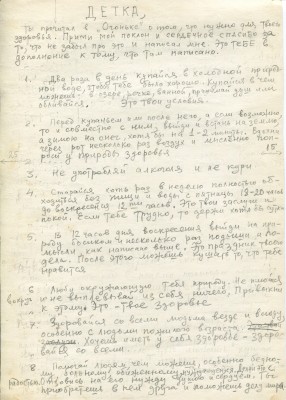 ДЕТКА,
ты прочитал в "Огоньке" о том, что нужно для Твоего
здоровья. Прими мой поклон и сердечное спасибо за
то, что не забыл про это и написал мне. Это ТЕБЕ в
дополнение к тому, что там написано.
1. Два раза в день купайся в холодной природ-
ной воде, чтобы тебе было хорошо. Купайся в чем
можешь: в озере, речке, ванной, принимай душ или
обливайся. Это твои условия.
2. Перед купанием или после него, а если возможно,
то и совместно с ним, выйди и встань на землю,
а зимой на снег, хотя бы на 1-2 минуты. Вдохни
через рот несколько раз воздух и мысленно попро-
си у природы здоровья
3. Не употребляй алкоголя и не кури
4. Старайся хоть раз в неделю полностью об-
ходиться без пищи и воды с пятницы 18-20 часов
до воскресенья 12ти часов. Это твои заслуги и
покой. Если тебе трудно, то держи хотя бы сутки
5. В 12 часов дня воскресенья выйди на при-
роду босиком и несколько раз подыши и по-
мысли, как написано выше. Это праздник твоего
дела. После этого можешь кушать то, что тебе
нравится
6. Люби окружающую тебя природу. Не плюйся
вокруг и не выплевывай из себя ничего. Привыкни
к этому: Это - твое Здоровье.
7. Здоровайся со всеми людьми везде и всюду,
особенно с людьми пожилого возраста.
Хочешь иметь у себя здоровье - здоро-
вайся со всеми.
8. Помогай людям, чем можешь, особенно бедно-
му, больному, обиженному, нуждающемуся. Делай это с
радостью. Отзовись на его нужду душою и сердцем. Ты
приобретешь в нем друга и поможешь делу мира.